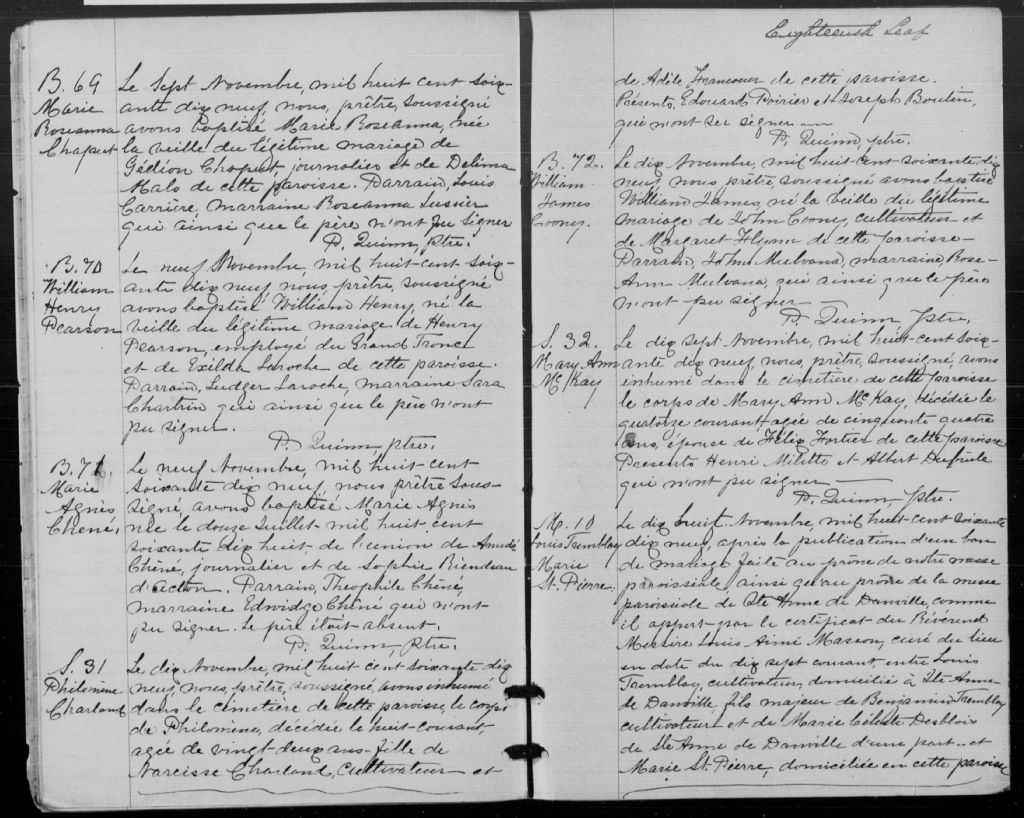 B. 69
Marie
Roseanna
Chaput
Le Sept Novembre, mil huit cent soix-
ante dix neuf, nous, prêtre, soussigné
avons baptisé Marie Roseanna, née
la veille du légitime mariage de
Gédéon Chaput, journalier et de Delima
Malo de cette paroisse. Parrain, Louis
Carrière, marraine Roseanna Lussier
qui ainsi que le père n'ont pu signer
P. Quinn, ptre.
B. 70
William
Henry
Pearson
Le neuf Novembre, mil huit-cent soix-
ante dix neuf, nous, prêtre, soussigné
avons baptisé William Henry, né la
veille du légitime mariage de Henry
Pearson, employé du Grand Tronc
et de Exilda Laroche de cette paroisse.
Parrain, Ludger Laroche, marraine Sara
Chartrin qui ainsi que le père n'ont
pu signer.
P. Quinn, ptre.
B. 71.
Marie
Agnès
Chené.
Le neuf Novembre, mil huit cent
soixante dix neuf, nous prêtre sous-
signé, avons baptisé Marie Agnès
née le douze Juillet mil huit cent
soixante dix huit de l'union de Amedé
Chêné, journalier et de Sophie Riendeau
d'Acton. Parrain, Theophile Chêné,
marraine Edwidge Chêné qui n'ont
pu signer. Le père était absent.
P. Quinn, ptre.
S. 31
Philomène
Charland
Le dix Novembre, mil huit cent soixante dix
neuf, nous, prêtre, soussigné, avons inhumé
dans le cimetière de cette paroisse, le corps
de Philomène, décédée le huit courant,
agée de vingt deux ans fille de
Narcisse Charland, cultivateur et
Eighteenth Leaf
de Adèle Francoeur de cette paroisse.
Présents, Edouard Poirier et Joseph Boutin,
qui n'ont su signer
P. Quinn, ptre.
B. 72.
William
James
Cooney.
Le dix Novembre, mil huit cent soixante dix
neuf, nous prêtre, soussigné avons baptisé
William James, né la veille du légitime
mariage de John Cooney, cultivateur et
de Margaret Flynn de cette paroisse
Parrain, John Mulvana, marraine, Rose-
Ann Mulvana, qui ainsi que le père
n'ont pu signer
P. Quinn, ptre.
S. 32.
Mary Ann
Mc Kay
Le dix sept Novembre, mil huit-cent soix-
ante dix neuf, nous, prêtre, soussigné, avons
inhumé dans le cimetière de cette paroisse
le corps de Mary Ann Mc Kay, décédée le
quatorze courant agée de cinquante quatre
ans, épouse de Félix Fortier de cette paroisse
Presents Henri Milette et Albert
qui n'ont pu signer
P. Quinn, ptre.
M. 10
Louis Tremblay
Marie
St. Pierre.
Le dix huit Novembre, mil huit cent soixante
dix neuf, après la publication d'un ban
de mariage faite au prône de notre messe
paroissiale ainsi qu'au prône de la messe
paroissiale de Ste Anne de Danville, comme
il appert par le certificat du Révérend
Messire Louis Aimé Masson, curé du lieu
en date du dix sept courant, entre Louis
Tremblay, cultivateur, domicilié à Ste Anne
de Danville fils majeur de Benjamin Tremblay
cultivateur et de Marie Céleste Desblois
de Ste Anne de Danville d'une part et
Marie St. Pierre, domiciliée en cette paroisse